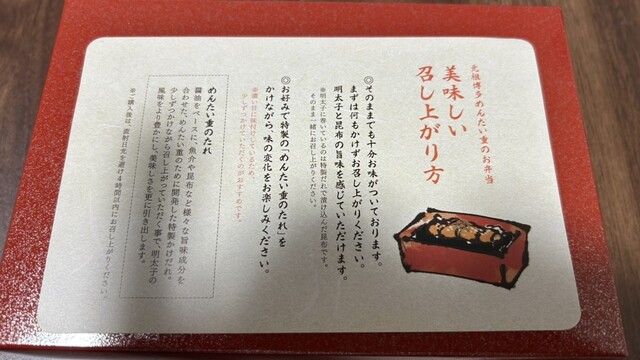 元祖博多めんたい重のお弁当
美味しい
召し上がり方
◎そのままでも十分お味がついております。
まずは何もかけずお召し上がりください。
明太子と昆布の旨味を感じていただけます。
※明太子に巻いているのは特製だれで漬け込んだ昆布です。
そのまま一緒にお召し上がりください。
◎お好みで特製の「めんたい重のたれ」を
かけながら、味の変化をお楽しみください。
※濃い目に味付けしているため、
少しずつつけていただくのがおすすめです。
めんたい重のたれ
醤油をベースに、魚介や昆布など様々な旨味成分を
合わせた、めんたい重のために開発した特製かけだれ。
少しずつかけながら召し上がっていただく事で、明太子の
風味をより豊かにし、美味しさを更に引き出します。
※ご購入後は、直射日光を避け4時間以内にお召し上がりください。